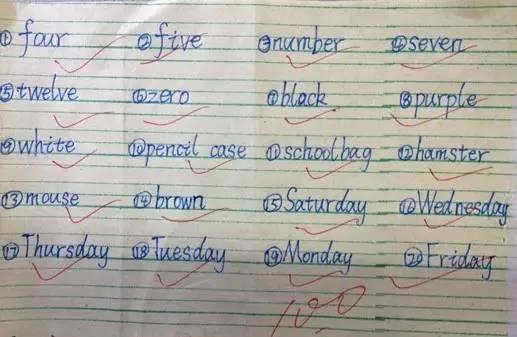 ① four ② five ③ number ④ seven
⑤ twelve ⑥ zero ⑦ black ⑧ purple
⑨ white ⑩ pencil case ⑪ schoolbag ⑫ hamster
⑬ mouse ⑭ brown ⑮ Saturday ⑯ Wednesday
⑰ Thursday ⑱ Tuesday ⑲ Monday ⑳ Friday
100